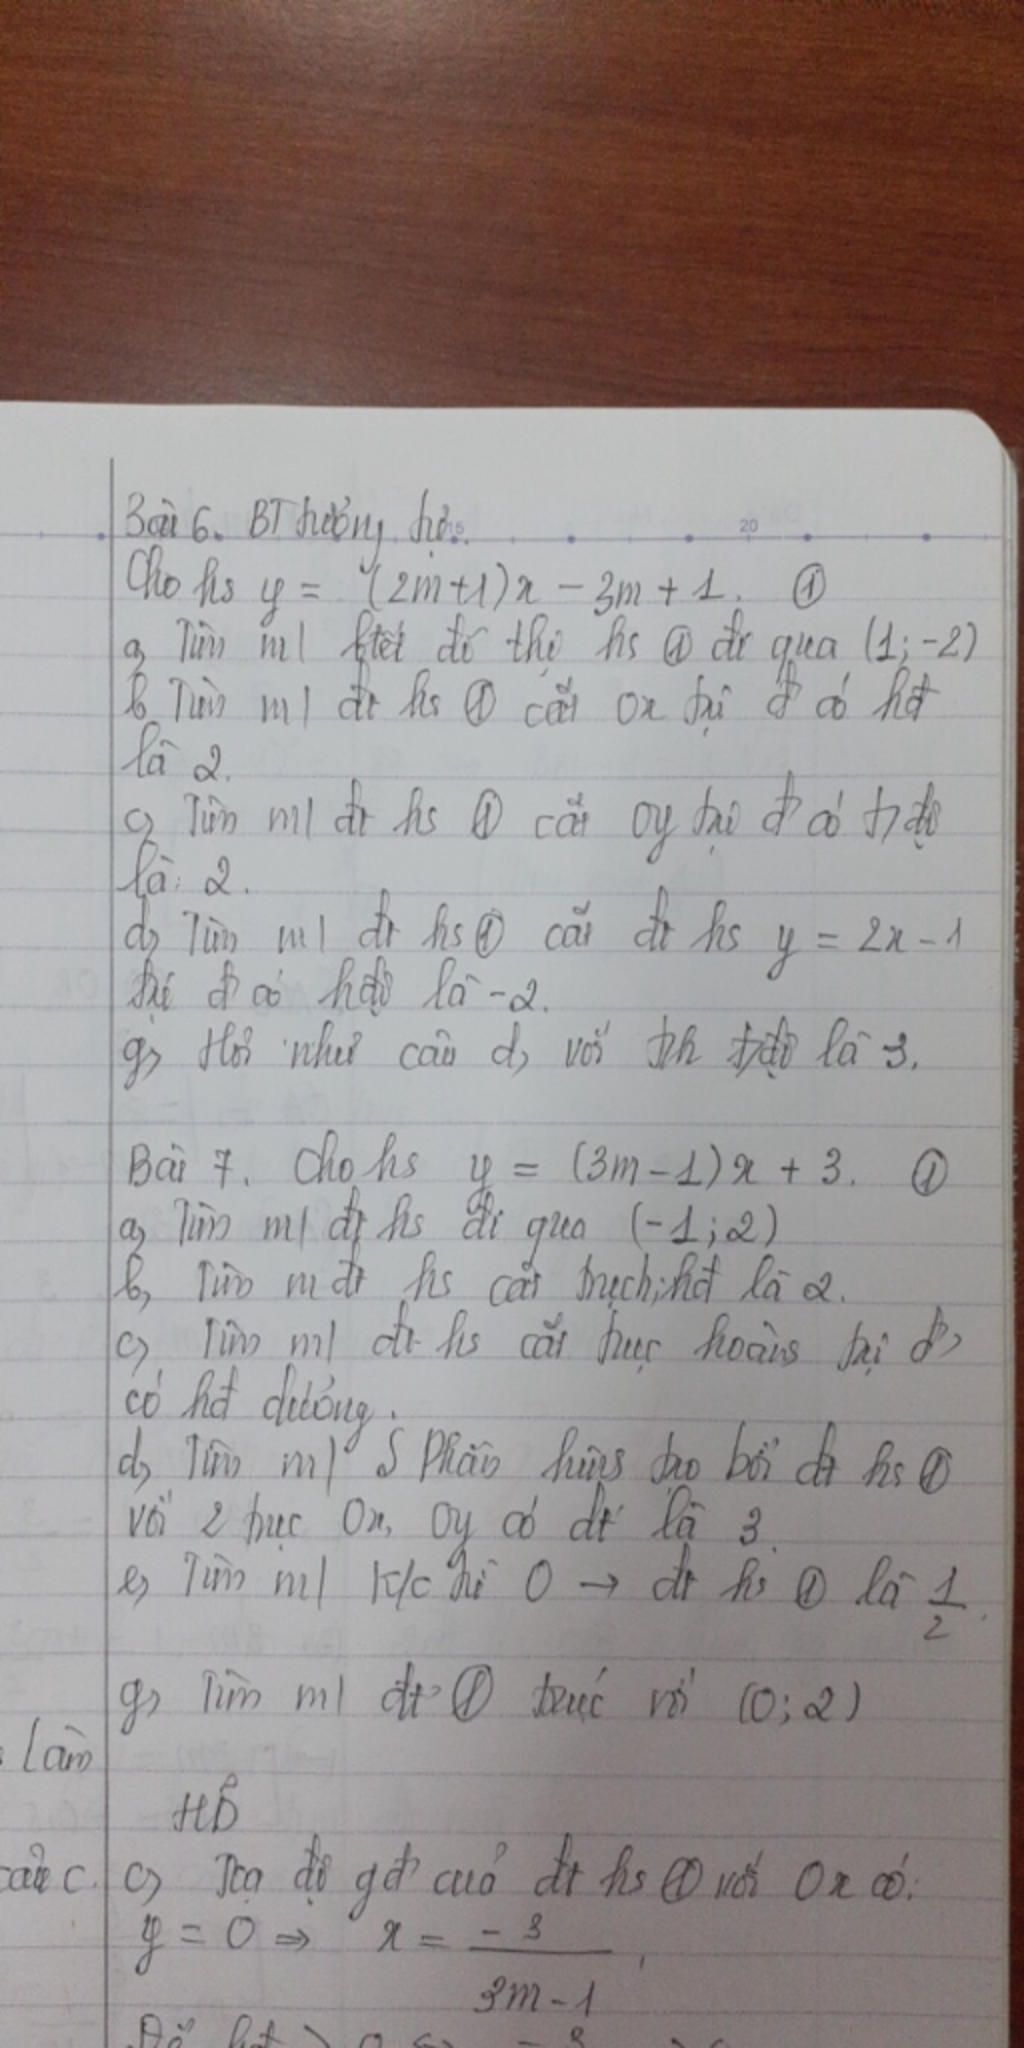 Bài 6. BT tương tự.
Cho hs y = (2m+1)x - 3m + 1. ①
a, Tìm m / đồ thị hs ① đi qua (1; -2)
b, Tìm m / đt hs ① cắt Ox tại đ có hđ
là 2.
c, Tìm m / đt hs ① cắt Oy tại đ có t/độ
là 2.
d, Tìm m / đt hs ① cắt đt hs y = 2x - 1
tại đ có hđộ là -2.
g, Hỏi như câu d, với t/độ là 3.
Bài 7. Cho hs y = (3m-1)x + 3. ①
a, Tìm m / đt hs đi qua (-1; 2)
b, Tìm m đt hs cắt hđ là 2.
c, Tìm m / đt hs cắt trục hoành tại đ
có hđ dương.
d, Tìm m / S Phần tạo bởi đt hs ①
với 2 trục Ox, Oy có dt là 3.
e, Tìm m / K/c từ O → đt hs ① là 1/2.
g, Tìm m / đt ① với (0; 2)
làm
HD
câu c. c, Toạ độ gđ của đt hs ① với Ox có:
y = 0 ⇒ x = -3/(3m-1)
Để